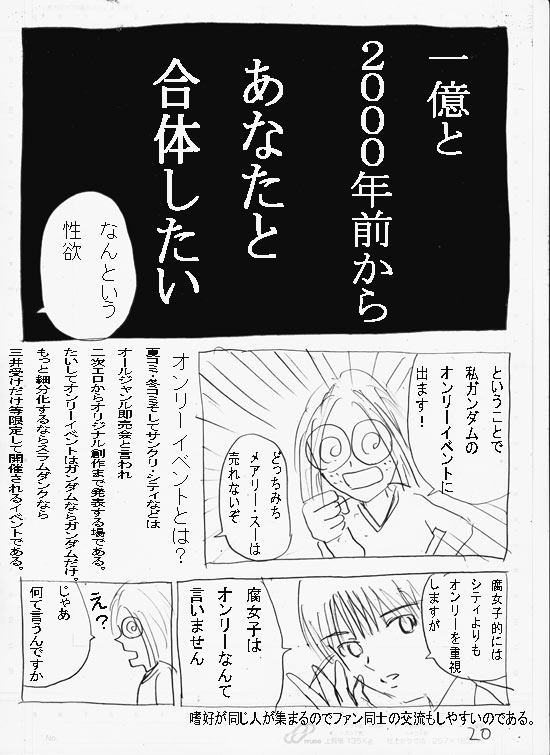 一億と
2000年前から
あなたと
合体したい
なんという
性欲
ということで
私ガンダムの
オンリーイベントに
出ます!
どっちみち
メアリー・スーは
売れないぞ
オンリーイベントとは?
夏コミ・冬コミそしてサンクリ・シティなどは
オールジャンル即売会と言われ
二次エロからオリジナル創作まで発表する場である。
たいしてオンリーイベントはガンダムならガンダムだけ。
もっと細分化するならスラムダンクなら
三井受けだけ等限定して開催されるイベントである。
腐女子的には
シティよりも
オンリーを重視
しますが
腐女子は
オンリーなんて
言いません
え?
じゃあ
何て言うんですか
嗜好が同じ人が集まるのでファン同士の交流もしやすいのである。
20
No.
muse
上質紙 135kg